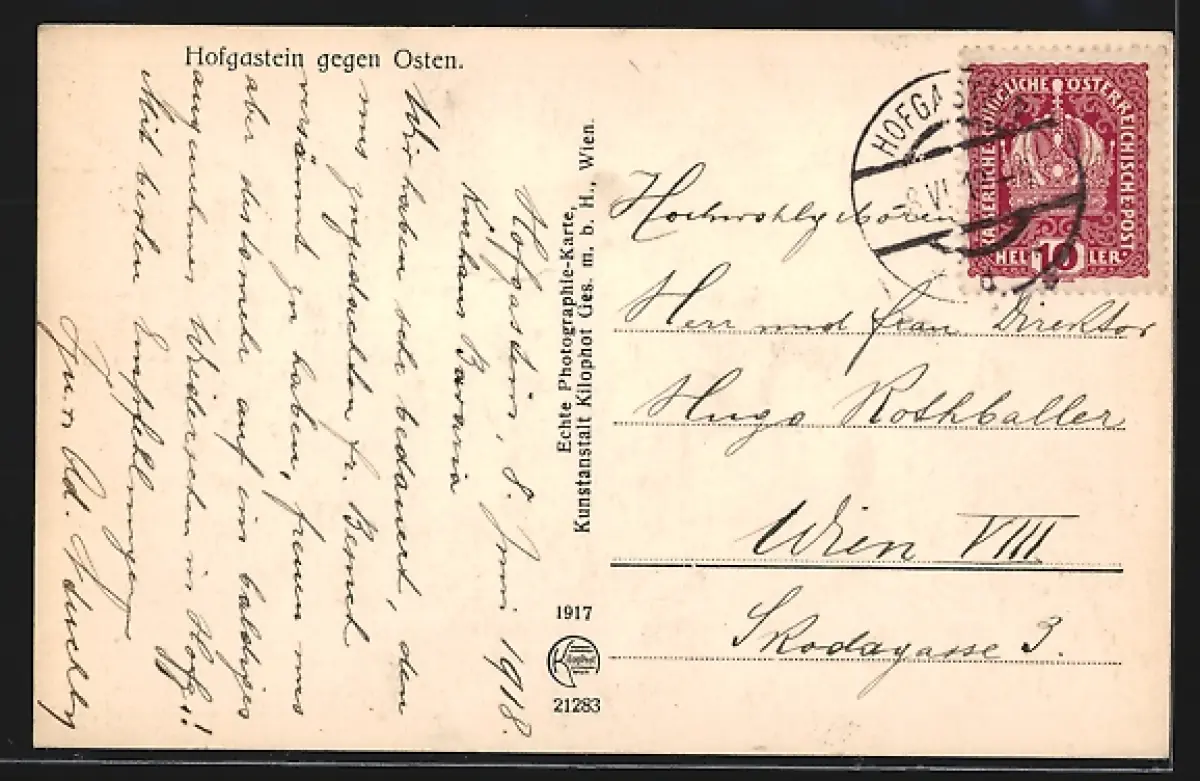 Hofgastein gegen Osten.
Hofgastein, 8. Juni 1918.
Kurhaus Bavaria
Wir haben sehr bedauert, den
uns zugedachten fr. Besuch
versäumt zu haben, freuen uns
aber destomehr auf ein baldiges
angenehmes Wiedersehen in Hofg.!!
Mit besten Empfehlungen
Echte Photographie-Karte,
Kunstanstalt Kilophot Ges. m. b. H., Wien.
1917
Kilophot
21283
HOFGAS
8 VI
KAISERLICHE KÖNIGLICHE ÖSTERREICHISCHE POST
HELLER
10
Hochwohlgeboren
Herr und Frau Direktor
Hugo Rothballer
Wien VIII
Skodagasse 3.